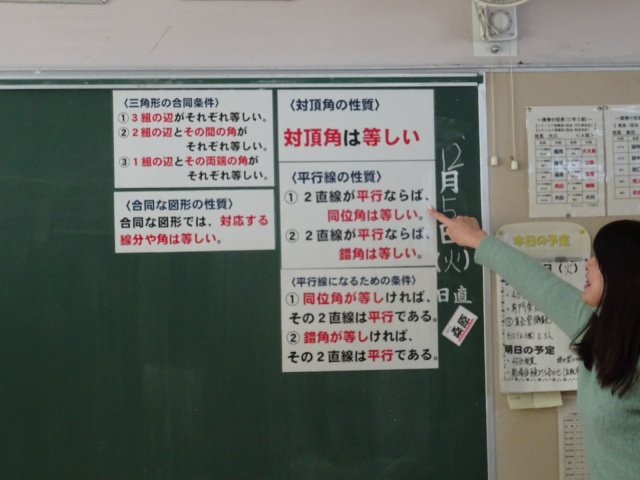 〈三角形の合同条件〉
①３組の辺がそれぞれ等しい。
②２組の辺とその間の角が
それぞれ等しい。
③１組の辺とその両端の角が
それぞれ等しい。
〈合同な図形の性質〉
合同な図形では、対応する
線分や角は等しい。
〈対頂角の性質〉
対頂角は等しい
〈平行線の性質〉
① ２直線が平行ならば、
同位角は等しい。
② ２直線が平行ならば、
錯角は等しい。
〈平行線になるための条件〉
① 同位角が等しければ、
その２直線は平行である。
② 錯角が等しければ、
その２直線は平行である。
12月5日(火)
日直
本日の予定
(火)
明日の予定